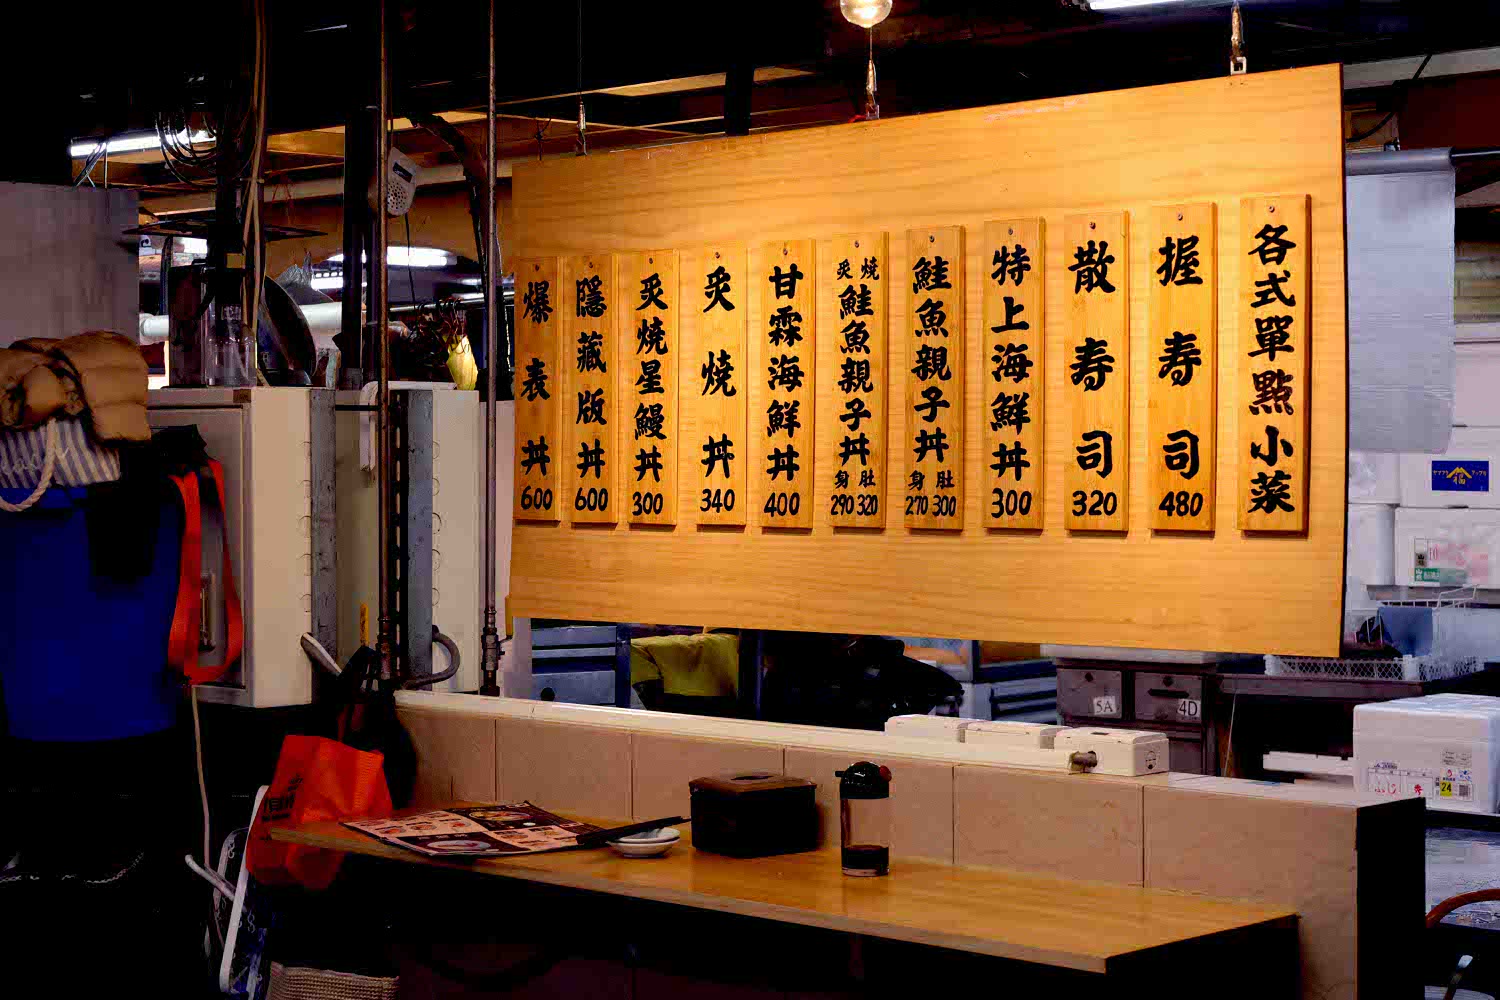 各式單點小菜
握寿司
480
散寿司
320
特上海鮮丼
300
鮭魚親子丼
身 肚
270 300
炙燒
鮭魚親子丼
身 肚
290 320
甘霖海鮮丼
400
炙燒丼
340
炙燒星鰻丼
300
隱藏版丼
600
爆表丼
600
5A
4D
24